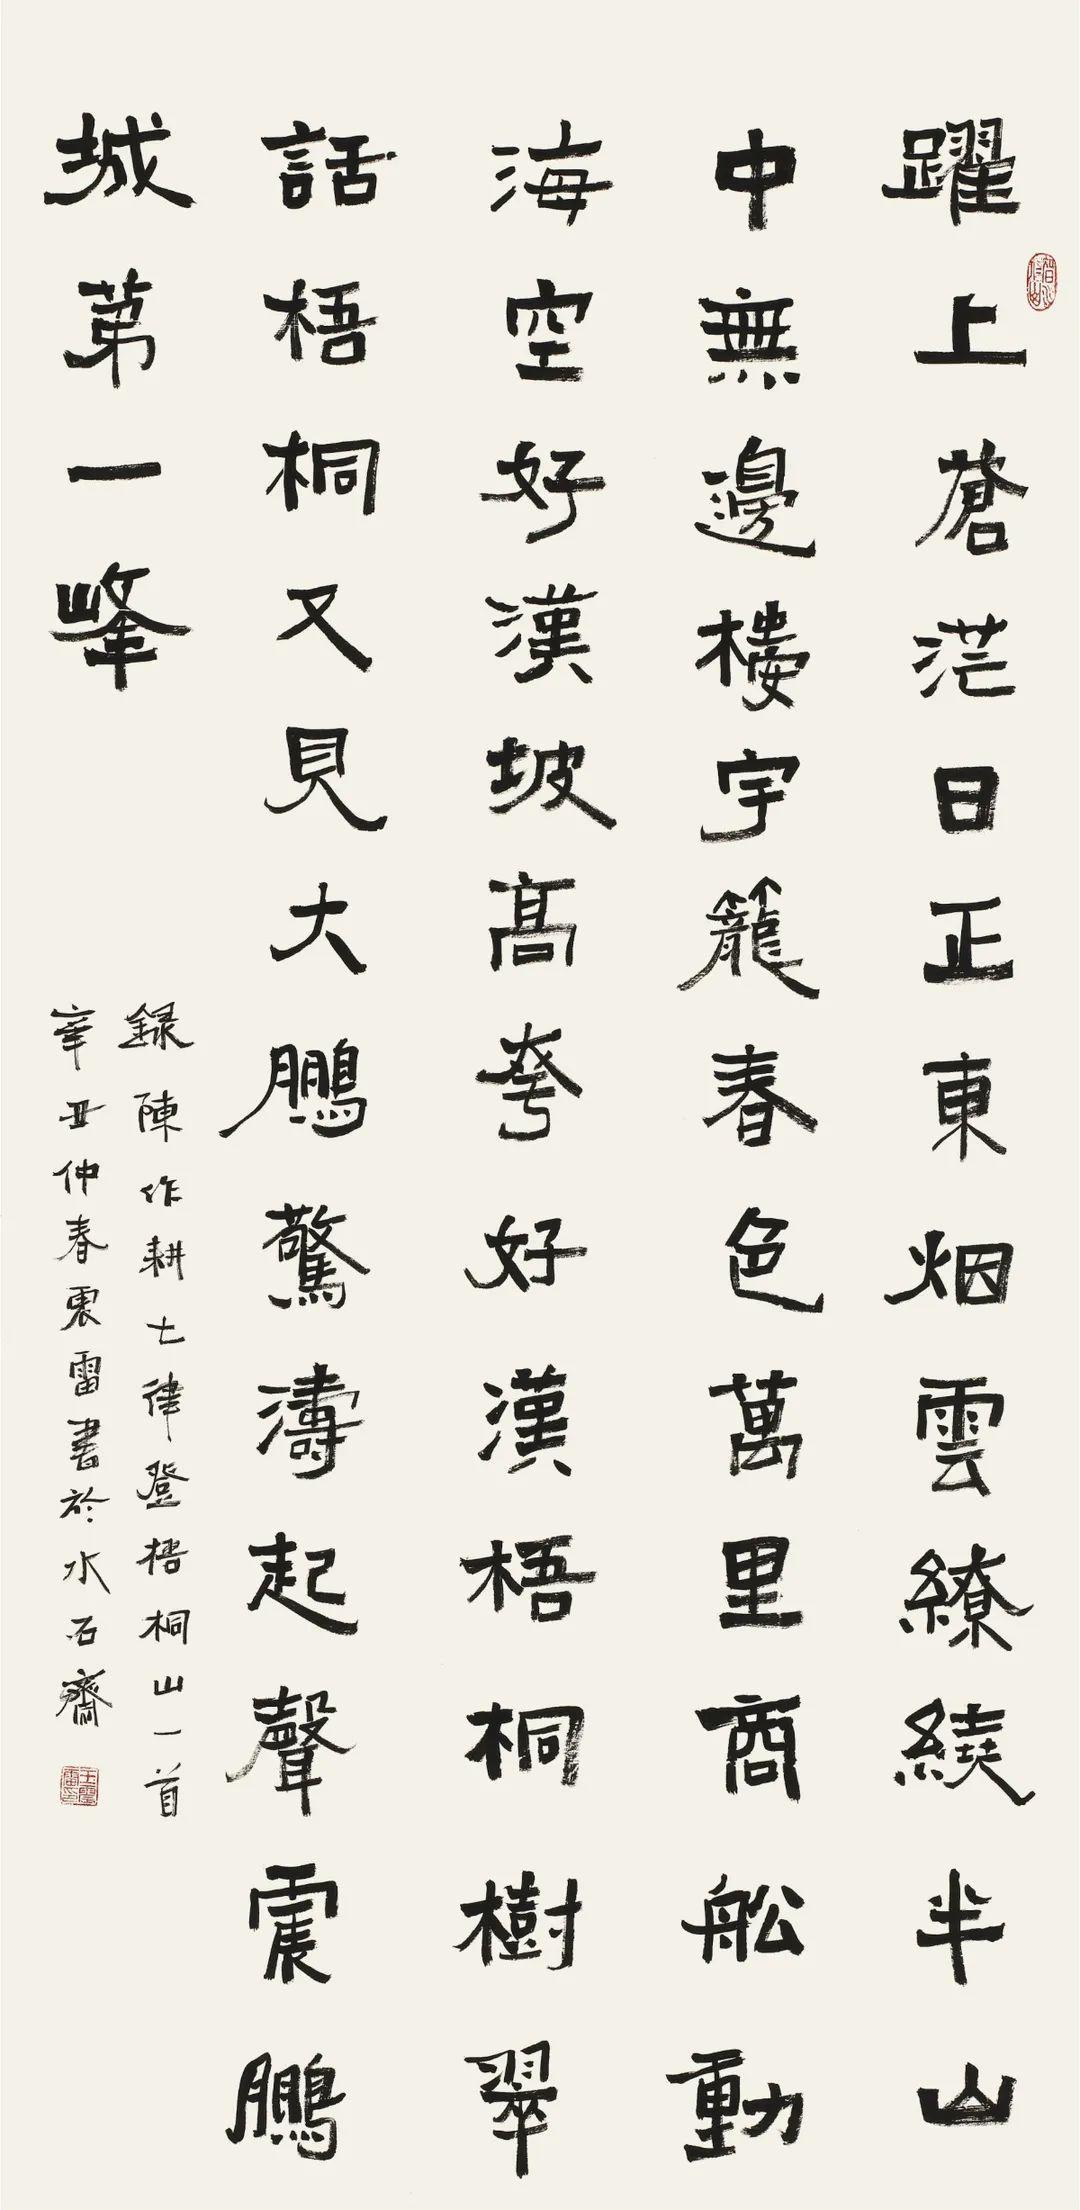 躍上蒼茫日正東烟雲繚繞半山
中無邊樓宇籠春色萬里商船動
海空好漢坡高夸好漢梧桐樹翠
話梧桐又見大鵬驚濤起聲震鵬
城第一峰
録陳作耕七律登梧桐山一首
辛丑仲春震雷書於水石齋